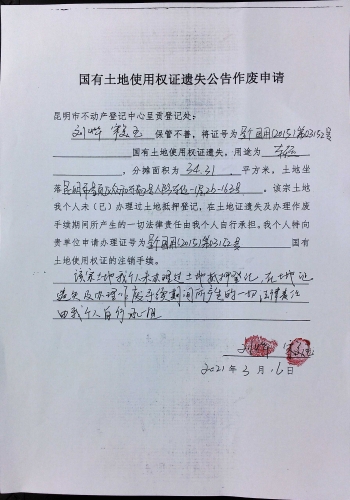 国有土地使用权证遗失公告作废申请
昆明市不动产登记中心呈贡登记处:
保管不善,将证号为
国有土地使用权证遗失,用途为
,分摊面积为 34.31 ,平方米,土地坐
落
。该宗土地
我个人未(已)办理过土地抵押登记,在土地遗失及办理作废
手续期间所产生的一切法律责任由我个人自行承担。我个人特向
贵单位申请办理证号为 国有
土地使用权证的注销手续。
该宗土地我个人未办理过土地抵押登记,在土地证
遗失及办理作废手续期间所产生的一切法律责任
由我个人自行承担
2021年3月16日